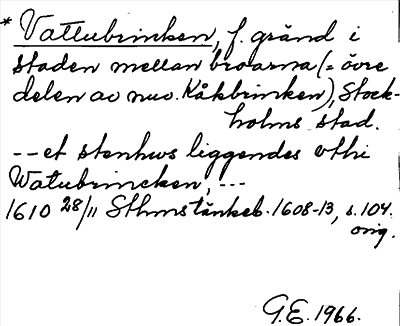 * Vattubrinken, f. gränd i
staden mellan broarna (= övre
delen av nuv. Kåkbrinken), Stock-
holms stad.
-- et stenhws liggendes vthi
Watubrincken, ---
1610 28/11 Sthmstänkeb. 1608-13, s. 104.
orig.
G.E. 1966.